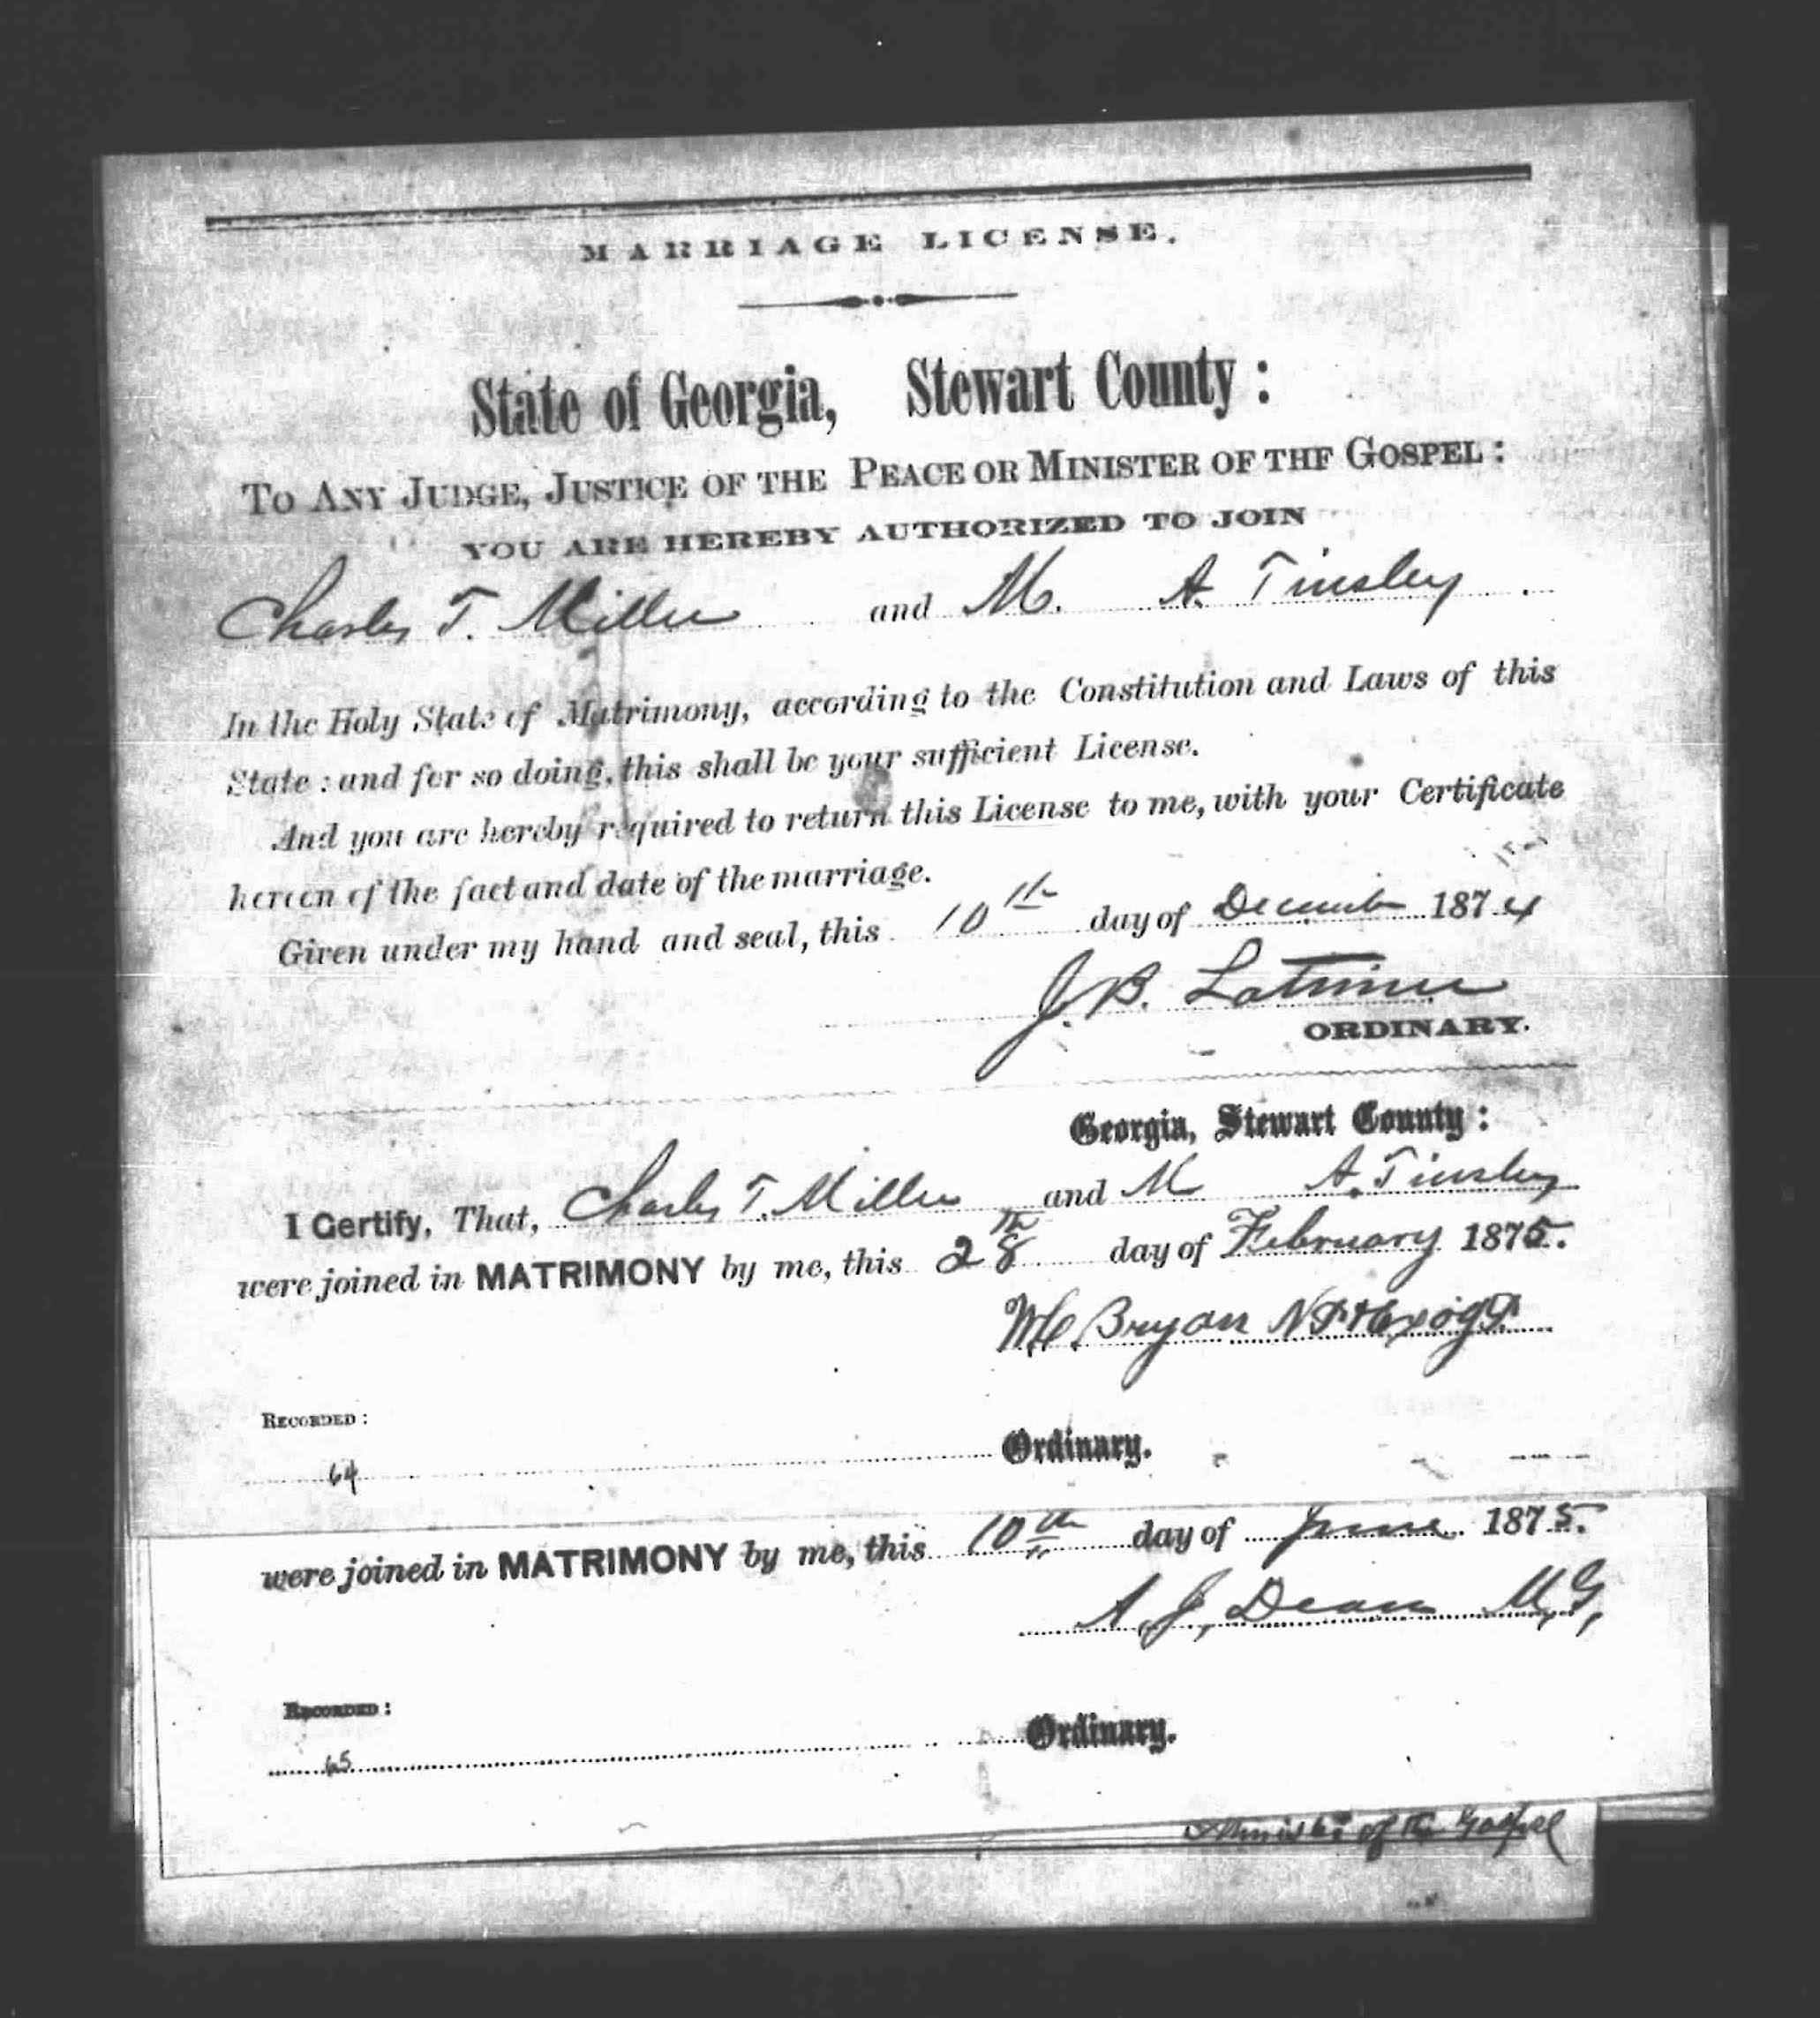 MARRIAGE LICENSE.
State of Georgia, Stewart County :
TO ANY JUDGE, JUSTICE OF THE PEACE OR MINISTER OF THF GOSPEL :
YOU ARE HEREBY AUTHORIZED TO JOIN
Charles T. Miller and M. A. Tinsley
In the Holy State of Matrimony, according to the Constitution and Laws of this
State : and for so doing, this shall be your sufficient License.
And you are hereby required to return this License to me, with your Certificate
hereon of the fact and date of the marriage.
Given under my hand and seal, this 10th day of December 1874
J. B. Latimer
ORDINARY.
Georgia, Stewart County :
I Certify, That, Charles T. Miller and M A. Tinsley
were joined in MATRIMONY by me, this 28th day of February 1875.
Bryan
RECORDED :
64 Ordinary.
were joined in MATRIMONY by me, this 10th day of June 1875.
A. J, Dean M, G,
RECORDED :
65 Ordinary.
Minister of the Gospel